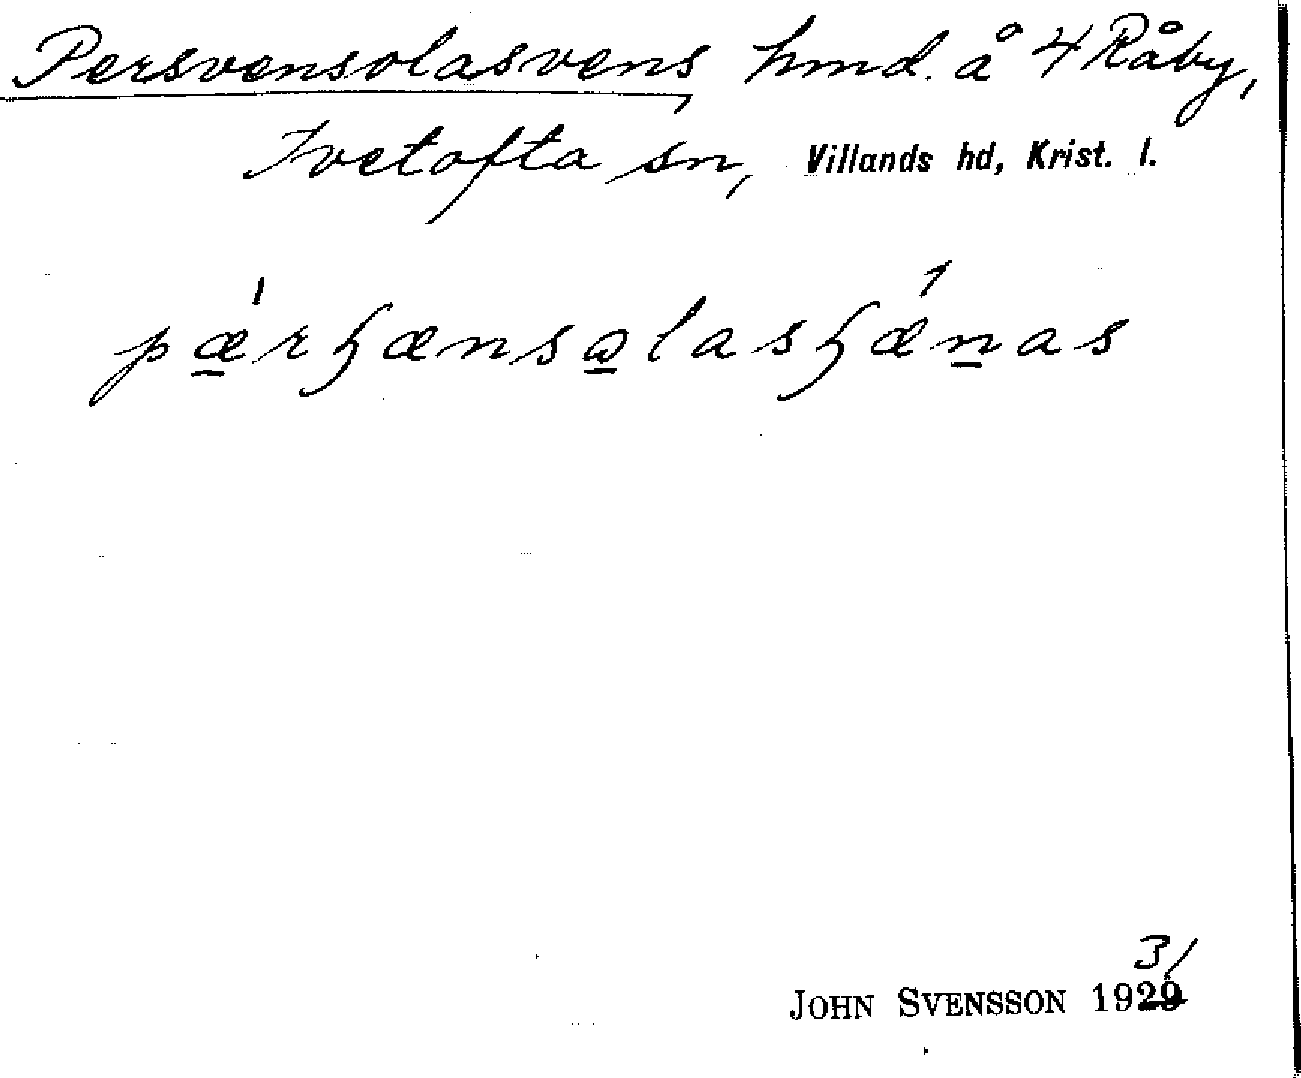 Persvensolasvens, hmd. å 4 Råby,
Ivetofta sn, Villands hd, Krist. l.
31
JOHN SVENSSON 1929